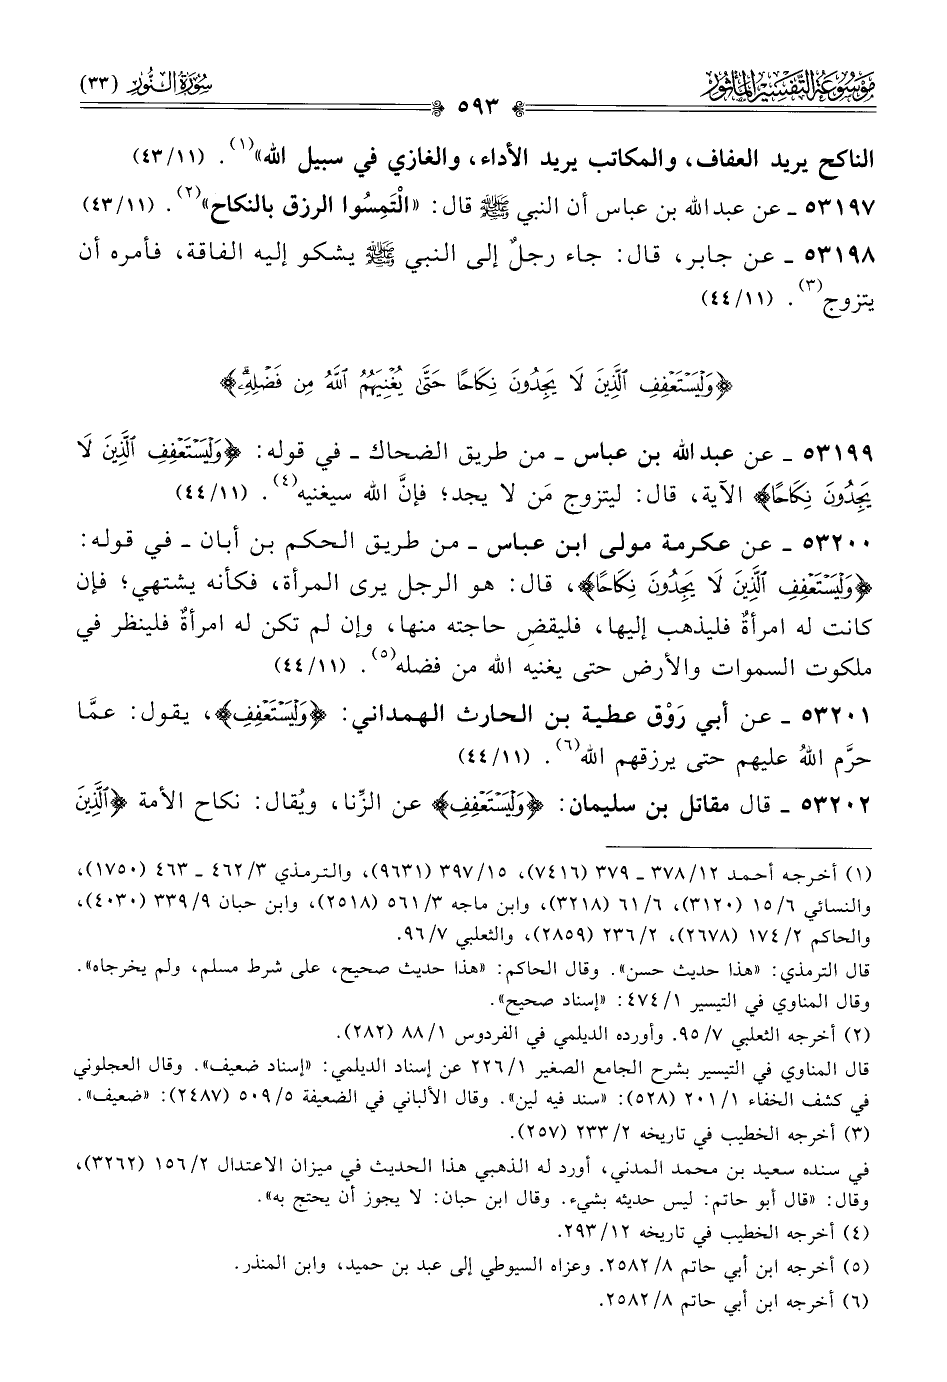 مَوْسُوعَة التَّفْسِيْرِ المَأْثُورِ
سُورَةُ النُّورِ (٣٣)
٥٩٣
الناكح يريد العفاف، والمكاتب يريد الأداء، والغازي في سبيل الله»(١). (٤٣/١١)
٥٣١٩٧ ـ عن عبد الله بن عباس أن النبي ﷺ قال: «الْتَمِسُوا الرزق بالنكاح»(٢). (٤٣/١١)
٥٣١٩٨ ـ عن جابر، قال: جاء رجلٌ إلى النبي ﷺ يشكو إليه الفاقة، فأمره أن
يتزوج(٣). (٤٤/١١)
﴿وَلْيَسْتَعْفِفِ ٱلَّذِينَ لَا يَجِدُونَ نِكَاحًا حَتَّىٰ يُغْنِيَهُمُ ٱللَّهُ مِن فَضْلِهِۦۗ﴾
٥٣١٩٩ ـ عن عبد الله بن عباس ـ من طريق الضحاك ـ في قوله: ﴿وَلْيَسْتَعْفِفِ ٱلَّذِينَ لَا
يَجِدُونَ نِكَاحًا﴾ الآية، قال: ليتزوج مَن لا يجد؛ فإنَّ الله سيغنيه(٤). (٤٤/١١)
٥٣٢٠٠ ـ عن عكرمة مولى ابن عباس ـ من طريق الحكم بن أبان ـ في قوله:
﴿وَلْيَسْتَعْفِفِ ٱلَّذِينَ لَا يَجِدُونَ نِكَاحًا﴾، قال: هو الرجل يرى المرأة، فكأنه يشتهي؛ فإن
كانت له امرأةٌ فليذهب إليها، فليقضِ حاجته منها، وإن لم تكن له امرأةٌ فلينظر في
ملكوت السموات والأرض حتى يغنيه الله من فضله(٥). (٤٤/١١)
٥٣٢٠١ ـ عن أبي رَوْق عطية بن الحارث الهمداني: ﴿وَلْيَسْتَعْفِفِ﴾، يقول: عمَّا
حرَّم اللهُ عليهم حتى يرزقهم الله(٦). (٤٤/١١)
٥٣٢٠٢ ـ قال مقاتل بن سليمان: ﴿وَلْيَسْتَعْفِفِ﴾ عن الزِّنا، ويُقال: نكاح الأمة ﴿ٱلَّذِينَ
(١) أخرجه أحمد ٣٧٨/١٢ ـ ٣٧٩ (٧٤١٦)، ٣٩٧/١٥ (٩٦٣١)، والترمذي ٤٦٢/٣ ـ ٤٦٣ (١٧٥٠)،
والنسائي ١٥/٦ (٣١٢٠)، ٦١/٦ (٣٢١٨)، وابن ماجه ٥٦١/٣ (٢٥١٨)، وابن حبان ٣٣٩/٩ (٤٠٣٠)،
والحاكم ١٧٤/٢ (٢٦٧٨)، ٢٣٦/٢ (٢٨٥٩)، والثعلبي ٩٦/٧.
قال الترمذي: «هذا حديث حسن». وقال الحاكم: «هذا حديث صحيح، على شرط مسلم، ولم يخرجاه».
وقال المناوي في التيسير ٤٧٤/١: «إسناد صحيح».
(٢) أخرجه الثعلبي ٩٥/٧. وأورده الديلمي في الفردوس ٨٨/١ (٢٨٢).
قال المناوي في التيسير بشرح الجامع الصغير ٢٢٦/١ عن إسناد الديلمي: «إسناد ضعيف». وقال العجلوني
في كشف الخفاء ٢٠١/١ (٥٢٨): «سند فيه لين». وقال الألباني في الضعيفة ٥٠٩/٥ (٢٤٨٧): «ضعيف».
(٣) أخرجه الخطيب في تاريخه ٢٣٣/٢ (٢٥٧).
في سنده سعيد بن محمد المدني، أورد له الذهبي هذا الحديث في ميزان الاعتدال ١٥٦/٢ (٣٢٦٢)،
وقال: «قال أبو حاتم: ليس حديثه بشيء. وقال ابن حبان: لا يجوز أن يحتج به».
(٤) أخرجه الخطيب في تاريخه ٢٩٣/١٢.
(٥) أخرجه ابن أبي حاتم ٢٥٨٢/٨. وعزاه السيوطي إلى عبد بن حميد، وابن المنذر.
(٦) أخرجه ابن أبي حاتم ٢٥٨٢/٨.